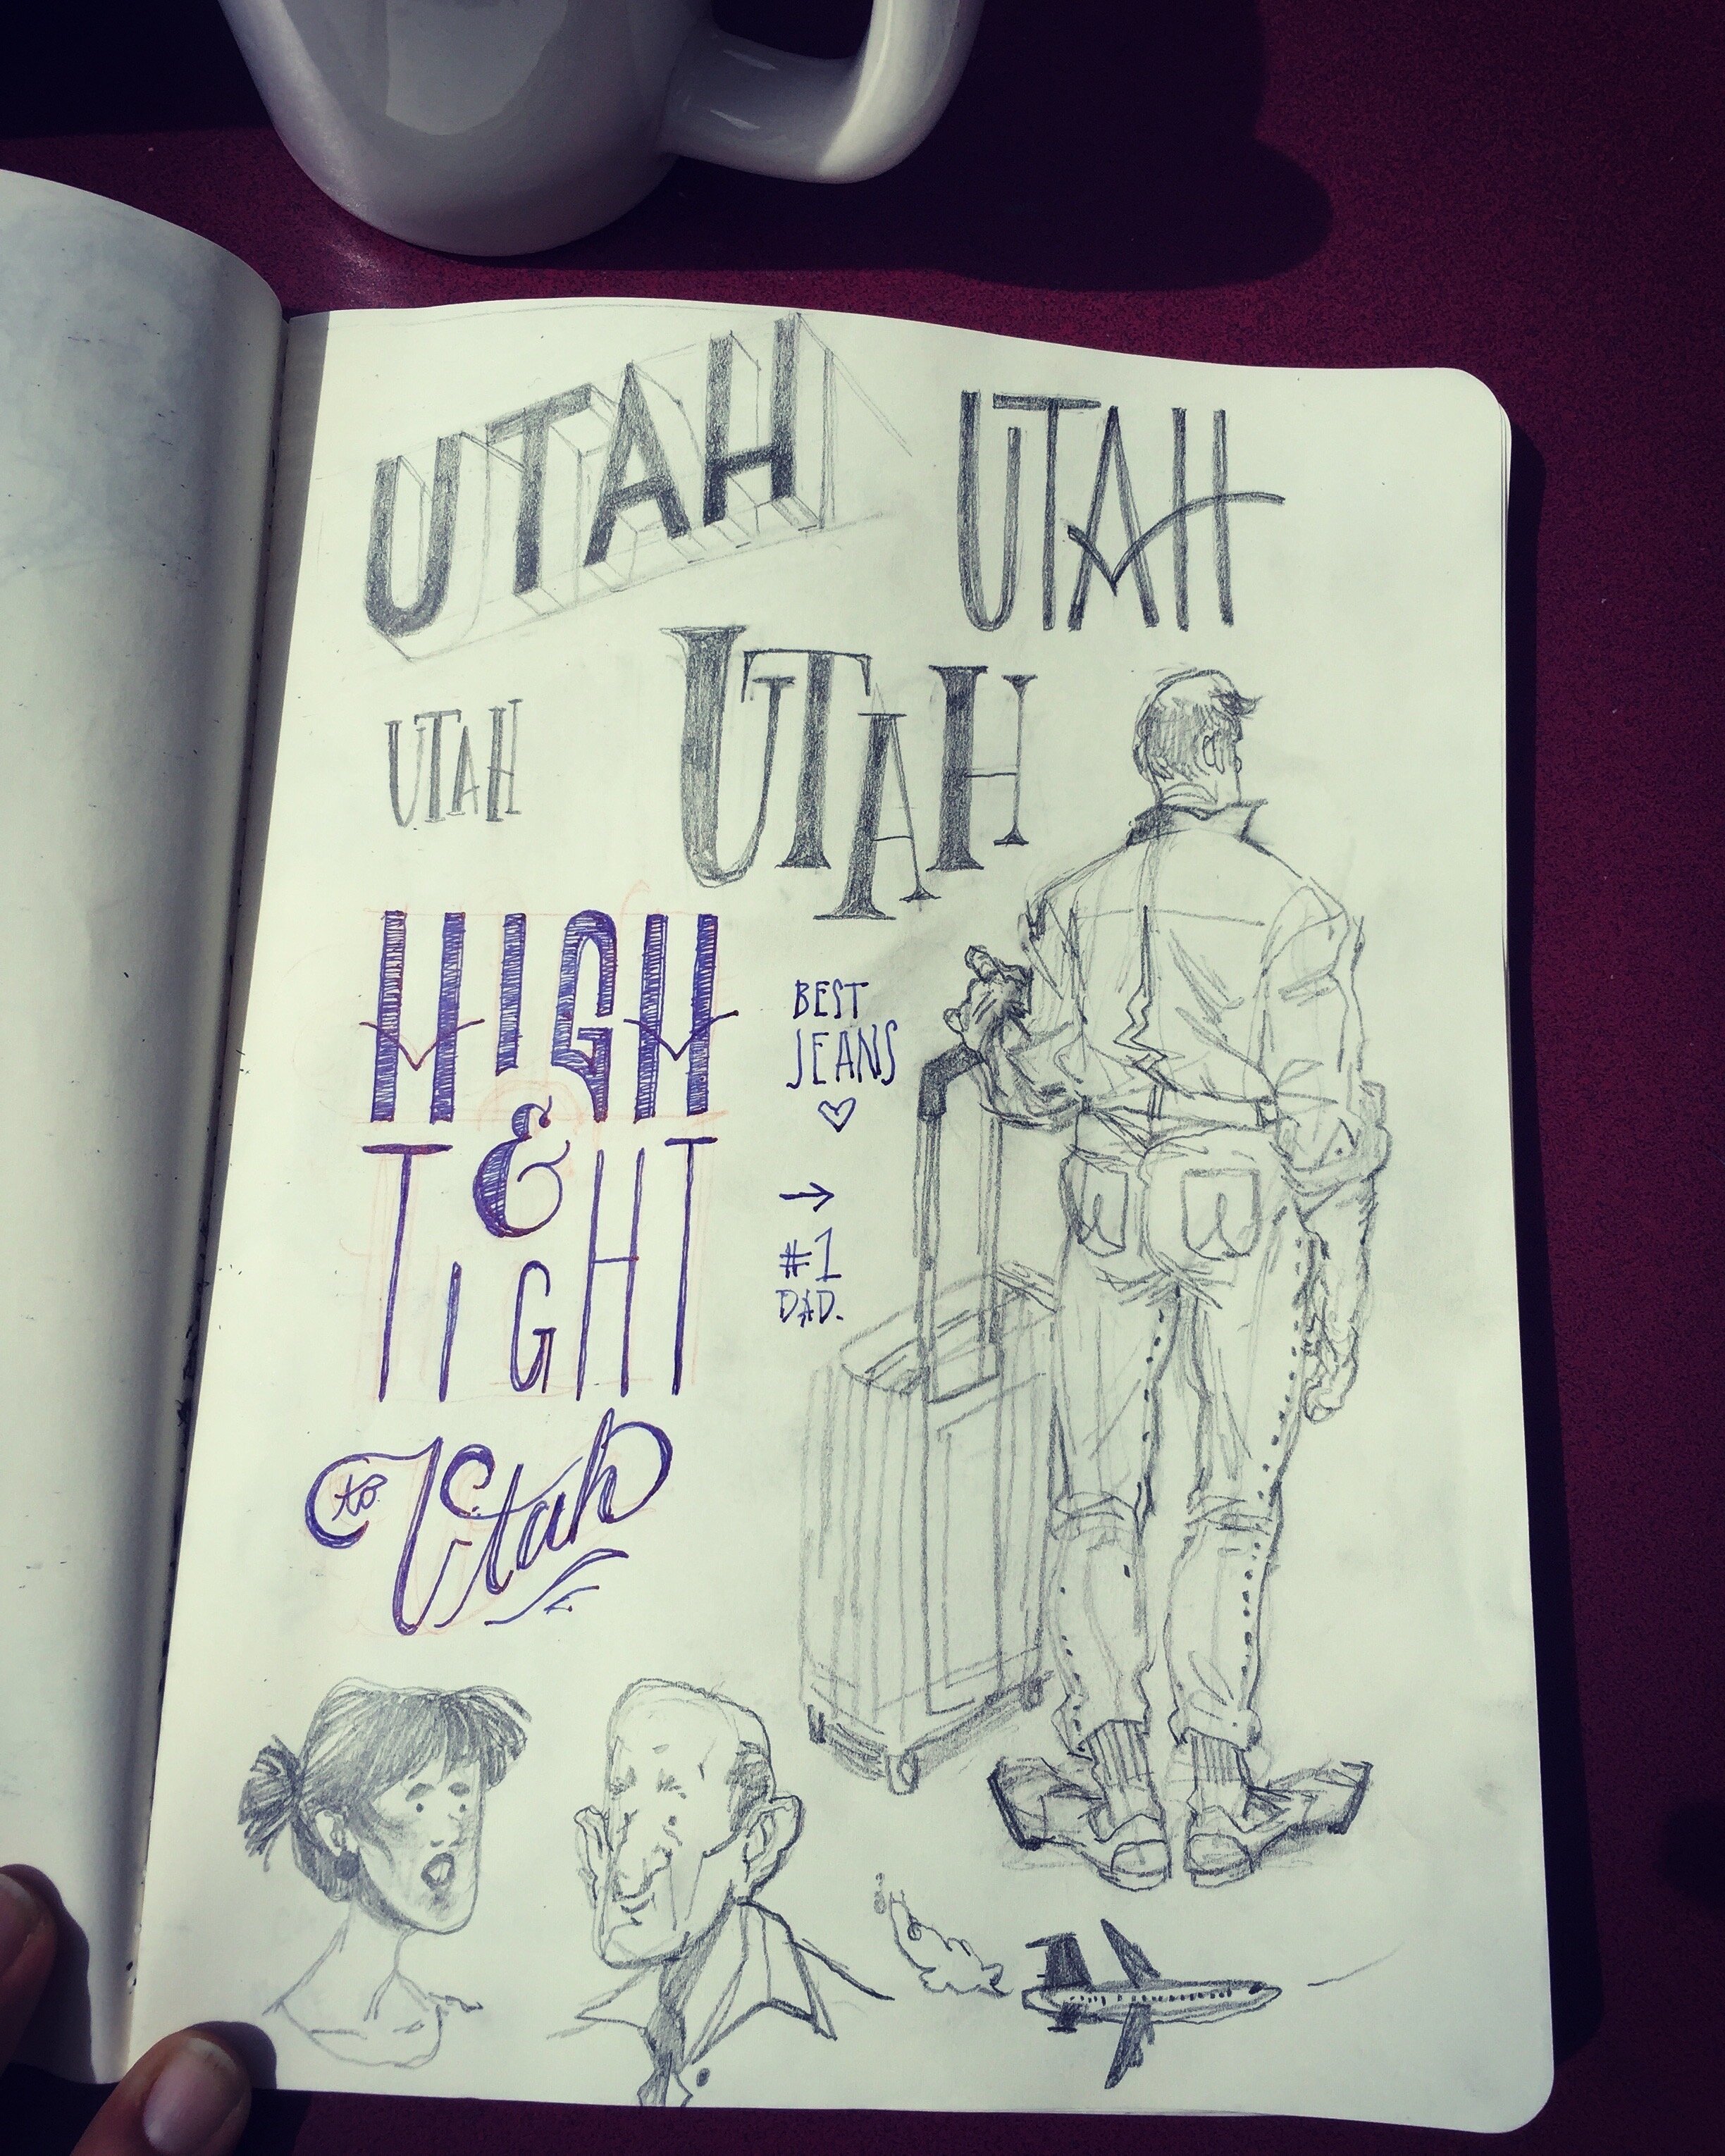 UTAH
UTAH
UTAH
UTAH
HIGH
&
TIGHT
to Utah
BEST
JEANS
→
#1
DAD.